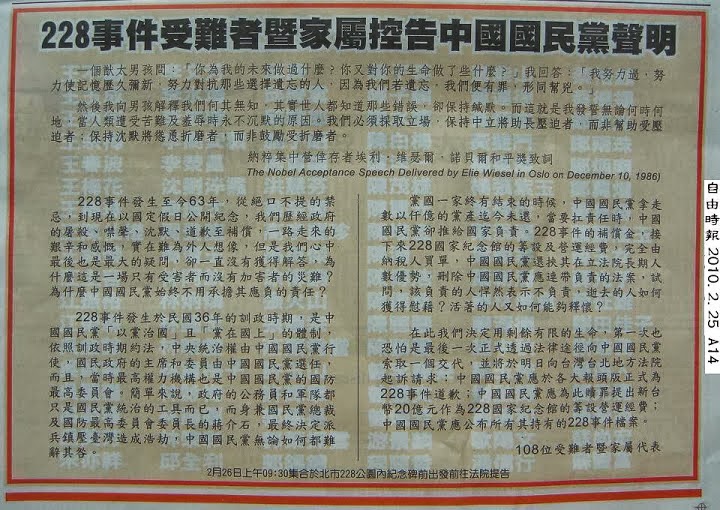 228事件受難者暨家屬控告中國國民黨聲明
一個猷太男孩問:「你為我的未來做過什麼?你又對你的生命做了些什麼?」我回答:「我努力過,努
力使記憶歷久彌新,努力對抗那些選擇遺忘的人,因為我們若遺忘,我們便有罪,形同幫兇。」
然後我向男孩解釋我們何其無知,其實世人都知道那些錯誤,卻保持緘默。而這就是我發誓無論何時何
地,當人類遭受苦難及羞辱時永不沉默的原因。我們必須採取立場,保持中立將助長壓迫者,而非幫助受壓
迫者;保持沈默將慫恿折磨者,而非鼓勵受折磨者。
納粹集中營倖存者埃利‧維瑟爾,諾貝爾和平獎致詞
The Nobel Acceptance Speech Delivered by Elie Wiesel in Oslo on December 10, 1986)
228事件發生至今63年,從絕口不提的禁
忌,到現在以國定假日公開紀念,我們歷經政府
的屠殺、噤聲、沈默、道歉至補償,一路走來的
艱辛和感慨,實在難為外人想像,但是我們心中
最後也是最大的疑問,卻一直沒有獲得解答,為
什麼這是一場只有受害者而沒有加害者的災難?
為什麼中國國民黨始終不用承擔其應負的責任?
228事件發生於民國36年的訓政時期,是中
國國民黨「以黨治國」且「黨在國上」的體制,
依照訓政時期約法,中央統治權由中國國民黨行
使,國民政府的主席和委員由中國國民黨選任,
而且,當時最高權力機構也是中國國民黨的國防
最高委員會。簡單來說,政府的公務員和軍隊都
只是國民黨統治的工具而已,而身兼國民黨總裁
及國防最高委員會委員長的蔣介石,最終決定派
兵鎮壓臺灣造成浩劫,中國國民黨無論如何都難
辭其咎。
黨國一家終有結束的時候,中國國民黨拿走
數以仟億的黨產迄今未還,當要扛責任時,中國
國民黨卻推給國家負責。228事件的補償金,接
下來228國家紀念館的籌設及營運經費,完全由
納稅人買單,中國國民黨還挾其在立法院長期人
數優勢,刪除中國國民黨應連帶負責的法案,試
問,該負責的人悍然表示不負責,逝去的人如何
獲得慰藉?活著的人又如何能夠釋懷?
在此我們決定用剩餘有限的生命,第一次也
恐怕是最後一次正式透過法律途徑向中國國民黨
索取一個交代,並將於明日向台灣台北地方法院
起訴請求:中國國民黨應於各大報頭版正式為
228事件道歉;中國國民黨應為此贖罪提出新台
幣20億元作為228國家紀念館的籌設營運經費;
中國國民黨應公布所有其持有的228事件檔案。
108位受難者暨家屬代表
2月26日上午09:30集合於北市228公園內紀念碑前出發前往法院提告
自由時報 2010. 2. 25 A14